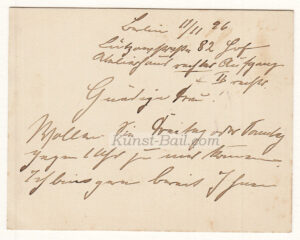 Berlin 11/11 96
Lützowstrasse 82 Hof
rechter Aufgang
II rechts
Gnädige Frau!
Wollen Sie Freitag oder Sonntag
gegen 1 Uhr zu mir kommen.
Ich bin gern bereit Ihnen
Kunst-Bail.com